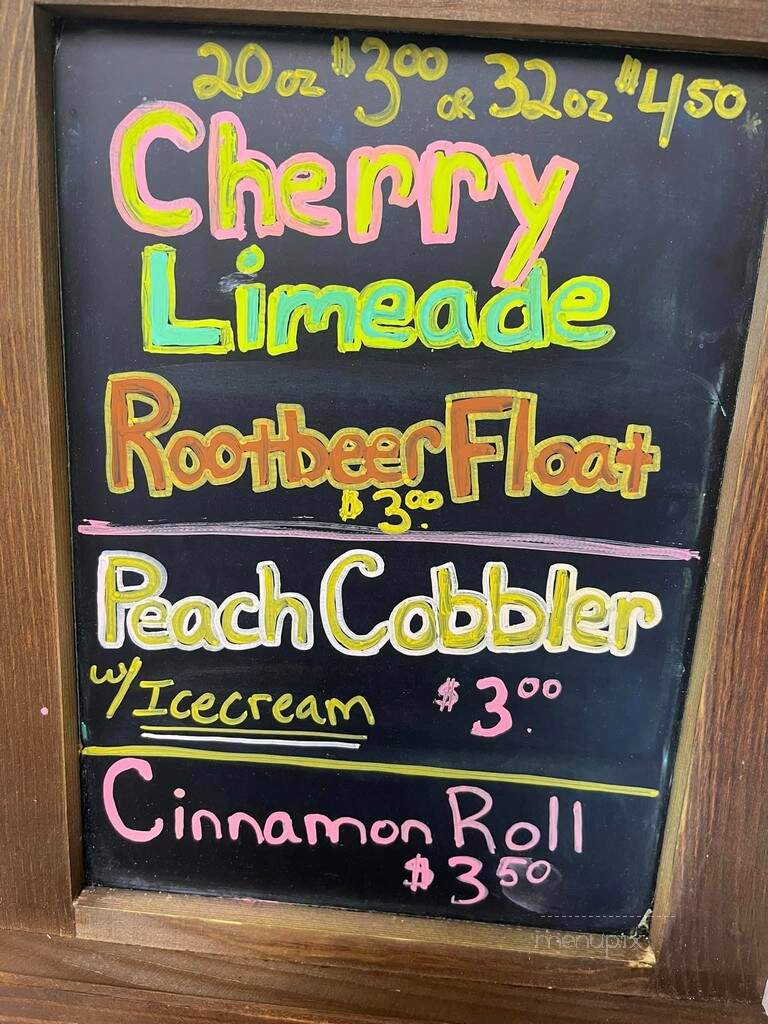 20 oz $3.00 OR 32 oz $4.50
Cherry
Limeade
Rootbeer Float
$3.00
Peach Cobbler
w/ Icecream $3.00
Cinnamon Roll
$3.50
menupix